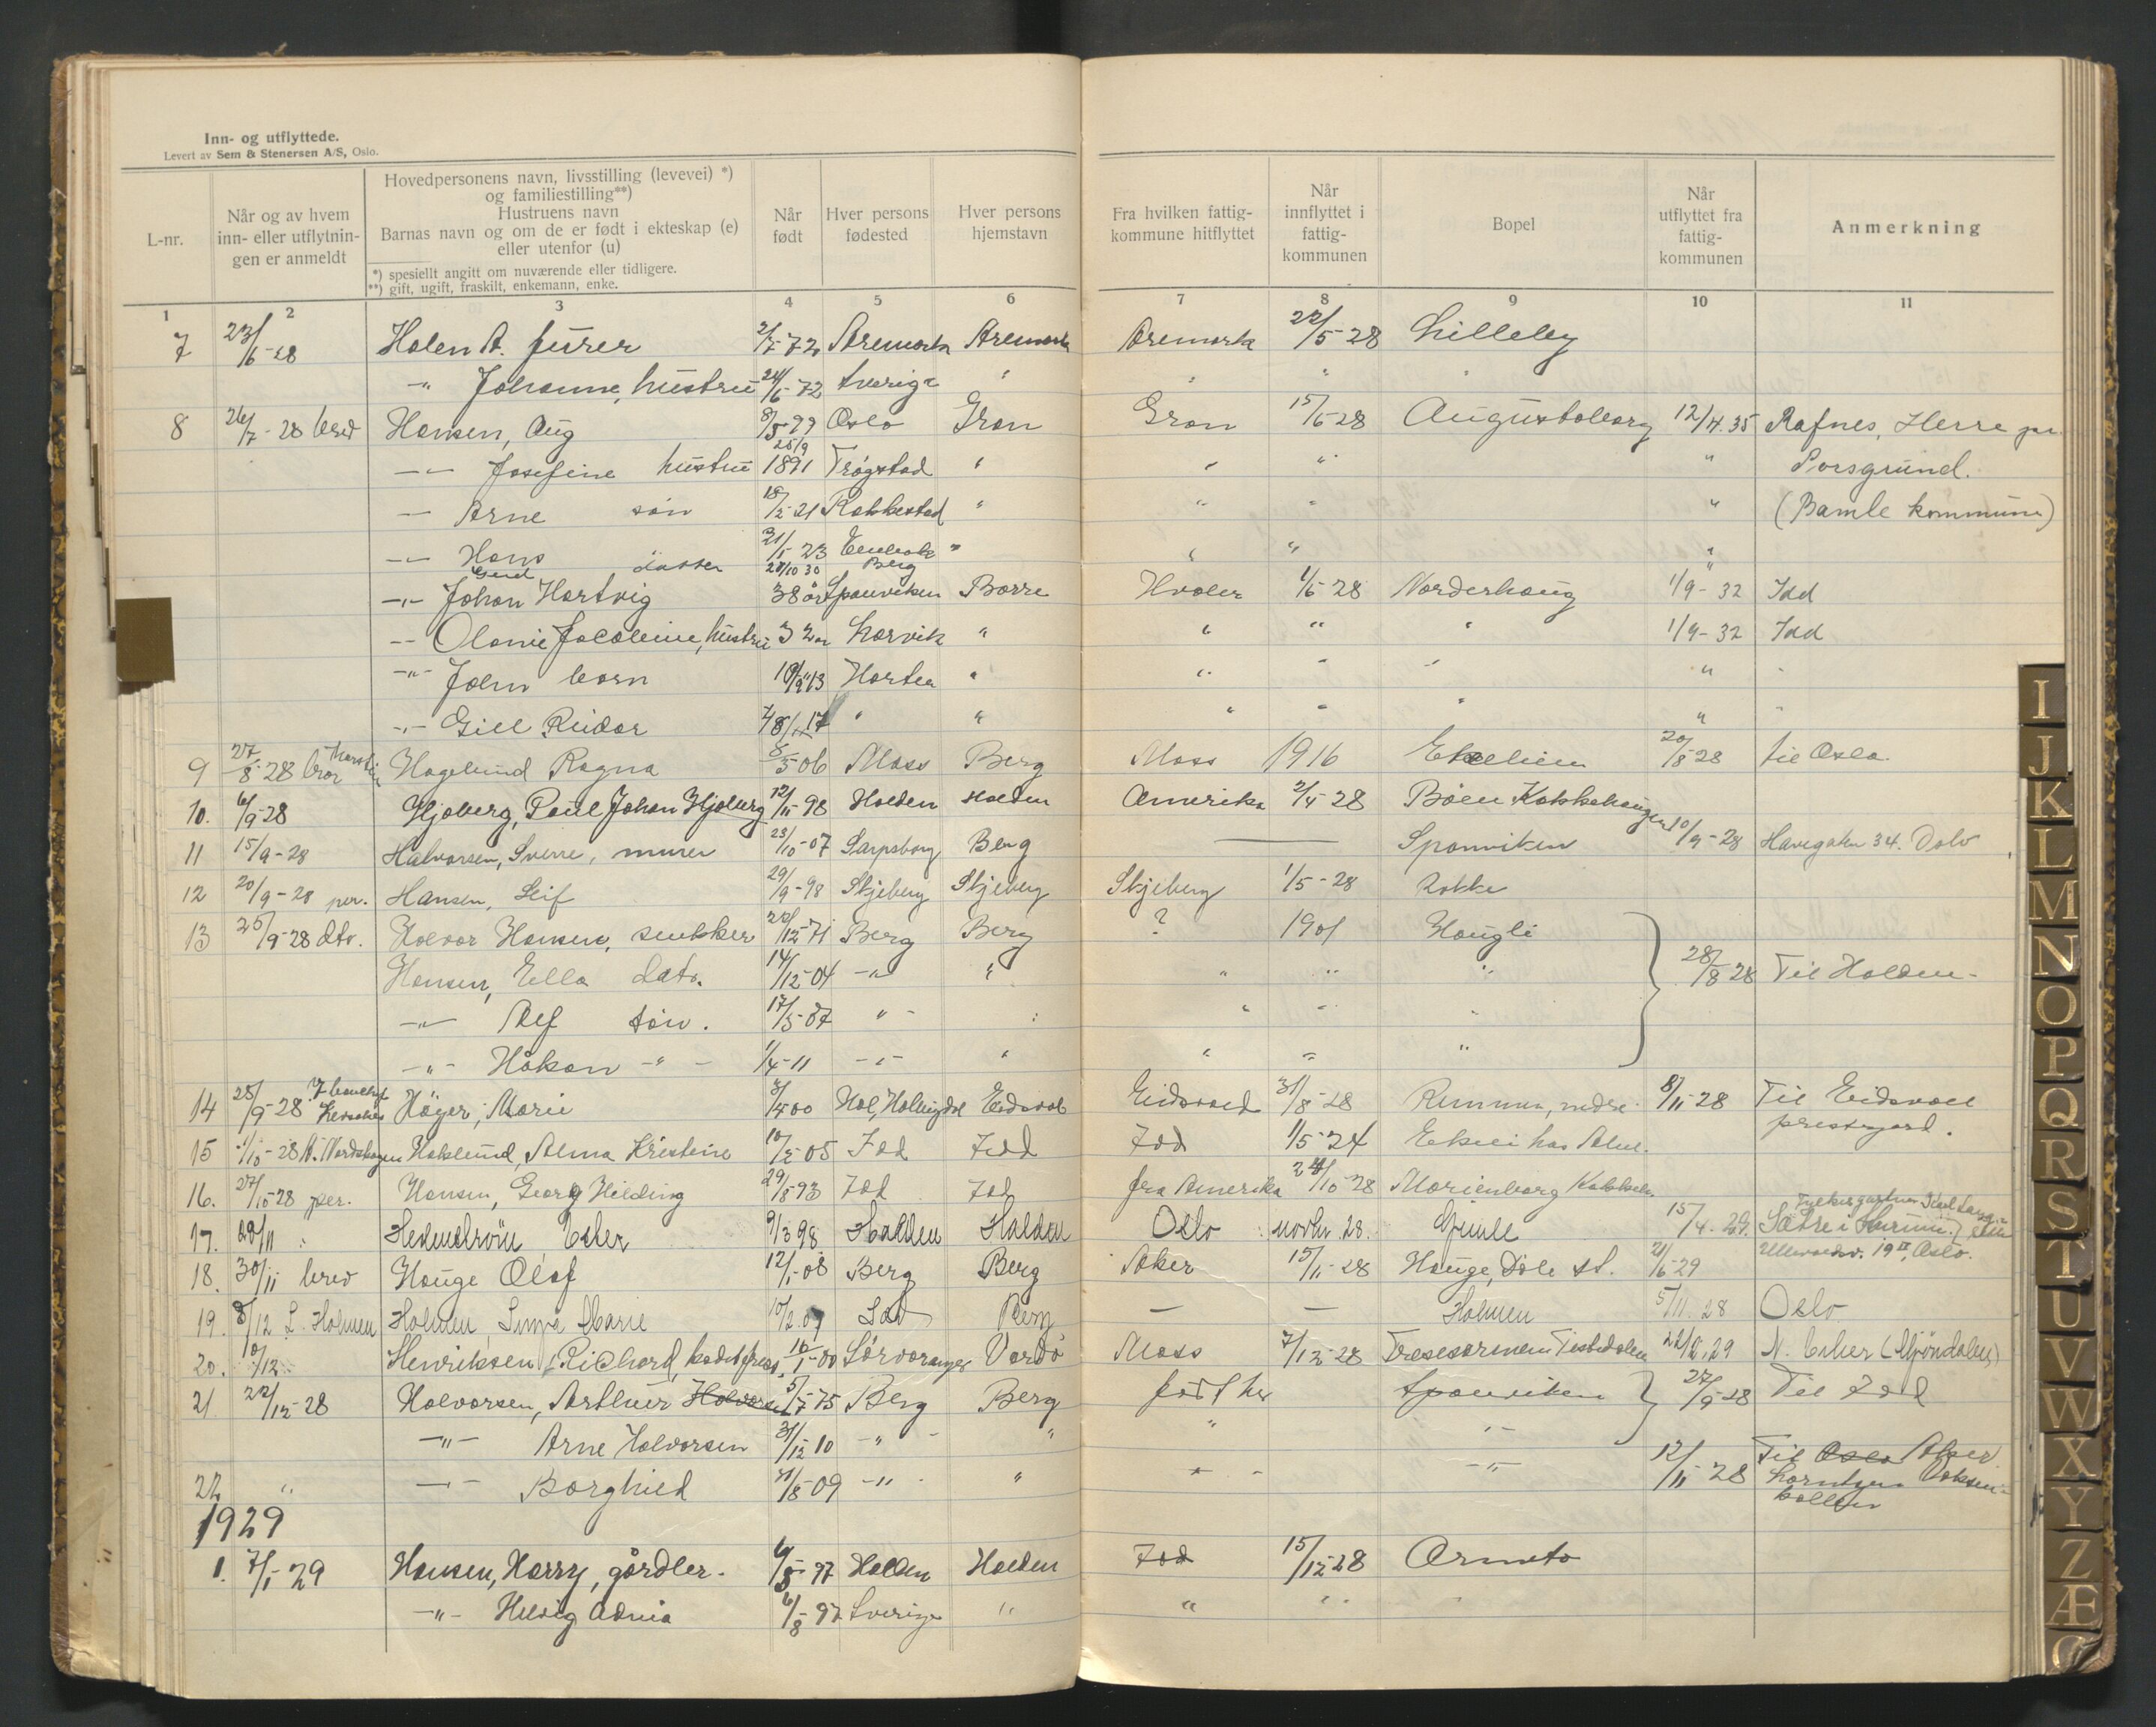 Inn- og utflyttede.
Levert av Sem & Stenersen A/S, Oslo.
L-nr.
Når og av hvem inn- eller utflytnin- gen er anmeldt
Hovedpersonens navn, livsstilling (levevei) *)
og familiestilling**)
Hustruens navn
Barnas navn og om de er født i ekteskap (e)
eller utenfor (u)
*) spesiellt angitt om nuværende eller tidligere.
**) gift, ugift, fraskilt, enkemann, enke.
Når født
Hver persons fødested
Hver persons hjemstavn
Fra hvilken fattig- kommune hitflyttet
Når innflyttet i fattig- kommunen
Bopel
Når utflyttet fra fattig- kommunen
Anmerkning
1 2 3 4 5 6 7 8 9 10 11
7 23/6-28 Holen A. furer 2/7-72 Aremark Aremark Aremark 22/5-28 Lilleby
" Johanne, hustru 24/6-72 Sverige " " " "
8 26/7-28 brev Hansen, Aug 8/5-99 Oslo Gran Gran 15/6-28 Augustoborg 12/4.35 Rafnes, Herre pr.
-"- Josefine hustru 25/9 1891 Trøgstad " " " " Porsgrund.
- Arne søn 18/2-21 Rakkestad " " " " (Bamle kommune)
-"- Hans 21/5 23 " " " "
Gerd datter 28/10 30 Berg "
-"- Johan Hartvig 38 år Sponviken Borre Hvaler 1/6-28 Norderhaug 1/9-32 Idd
-"- Olanie Jacobine, hustru 32 år Larvik " " " " 1/9-32 Idd
-"- John barn 10/9 13 Horten " " " " " "
-"- Gill Reidar 8/ 17 " " " " " " "
9 27/8-28 bror Hagelund Ragna 8/5 06 Moss Berg Moss 1916 Ekelien 20/8 28 til Oslo
10. 6/9-28 Hjoberg, Paul Johan Hjoberg 12/11 98 Halden Halden Amerika 2/4-28 Böen Kokkehaugen
11 15/9-28 Halvorsen, Sverre, murer 23/10-07 Sarpsborg Berg — Sponviken 10/9-28 Havegaten 34. Oslo
12 20/9-28 per. Hansen, Leif 29/9-98 Skjeberg Skjeberg Skjeberg 1/5-28 Rokke
13 25/9-28 dto. Halvor Hansen, snekker 22/12-71 Berg Berg ? 1901 Haugli
Hansen, Ella dato. 14/12-04 -"- " " " " 28/8 28 Til Halden-
-"- Alf søn. 17/5-07 " - " " - "
-"- Håkon -"- 1/4-11 -"- " " " "
14 25/9-28 Höyer, Marie 3/4 00 Hol, Hallingdal Eidsvold Eidsvold 31/8-28 Rummen, nedre. 8/11 28 Til Eidsvoll
prestegård.
15 1/10-28 A. Nordskogen Haklund, Alma Kristine 10/2-05 Idd Idd Idd 1/5-24 Ekeli hos
16. 27/10-28 per. Hansen, Georg Hilding 29/8-93 Idd Idd fra Amerika 24/10-28 Marienborg
17. 29/11 " Hedenström, Ester 9/3 98 Halden Halden Oslo novbr. 28. Gimle 15/4-29. Sætre i Hurum.
Ullevoldsv. 19 II, Oslo.
18. 30/11 brev Hauge Olaf 12/1-08 Berg Berg Aker 15/11-28 Hauge, Dale st. 21/6-29
19. 8/12 L. Holmen Holmen, Marie 10/2.09 Idd Berg — — Holmen 5/11 28 Oslo
20. 10/12.. Henriksen, Richard, 10/1-00 Sörvaranger Vardö Moss 7/12-28 Tistedalen 22/2.29 N. Eiker (Mjöndalen)
21 22/12-28 Halvorsen, Arthur Halvorsen 5/7-75 Berg Berg født her Sponviken 27/9-28 Til Idd
-"- Arne Halvorsen 31/12-10 -"- " " -"-
22 " -"- Borghild 21/8-09 -"- " " - -"- 12/11-28 Til Oslo Aker
Voksen-
kollen
1929
1. 7/1-29 Hansen, Harry, gårdler. 6/5-97 Halden Halden Idd 15/12-28
-"- Helvig Adnia 6/8-97 Sverige " " " "
I
J
K
L
M
N
O
P
Q
R
S
T
U
V
W
X
Y
Z
Æ